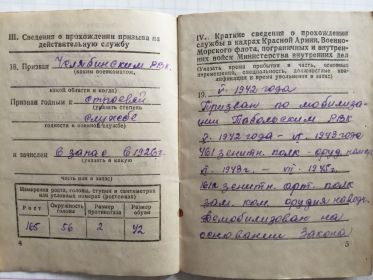 III. Сведения о прохождении призыва на
действительную службу
18. Призван Челябинским РВК
(каким военкоматом,
какой области и когда)
Призван годным к строевой
(указать степень
службе
годности к военной службе)
и зачислен в запас в 1926 г.
(указать в какую
часть или в запас)
Измерения роста, головы, ступни в сантиметрах
или условных номерах (ростовках)
Рост Окружность головы Размер противогаза Размер обуви
165 56 2 42
4
IV. Краткие сведения о прохождении
службы в кадрах Красной Армии, Военно-
Морского флота, пограничных и внутрен-
них войск Министерства внутренних дел
(Указать время прибытия и часть, основные
перемещения, специальность, должностные ква-
лификации и время увольнения в запас)
19. V. 1942 года
Призван по мобилиза-
ции Тобольским РВК
V. 1942 года - VI. 1943 года
461 зенитн. полк - оруд. номер
VI. 1943г. - VII. 1945г.
зенитн. арт. полк
зам. ком. орудия наводч.
Демобилизован на
основании Закона
5